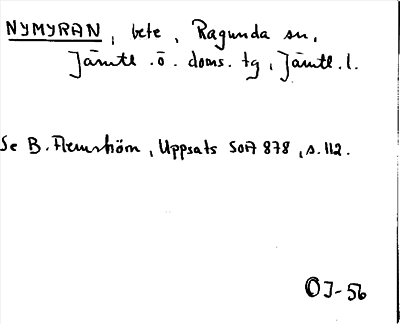 NYMYRAN, bete, Ragunda sn,
Jämtl. ö. doms. tg, Jämtl. l.
Se B. Flemström, Uppsats SOA 878, s. 112.
OJ-56